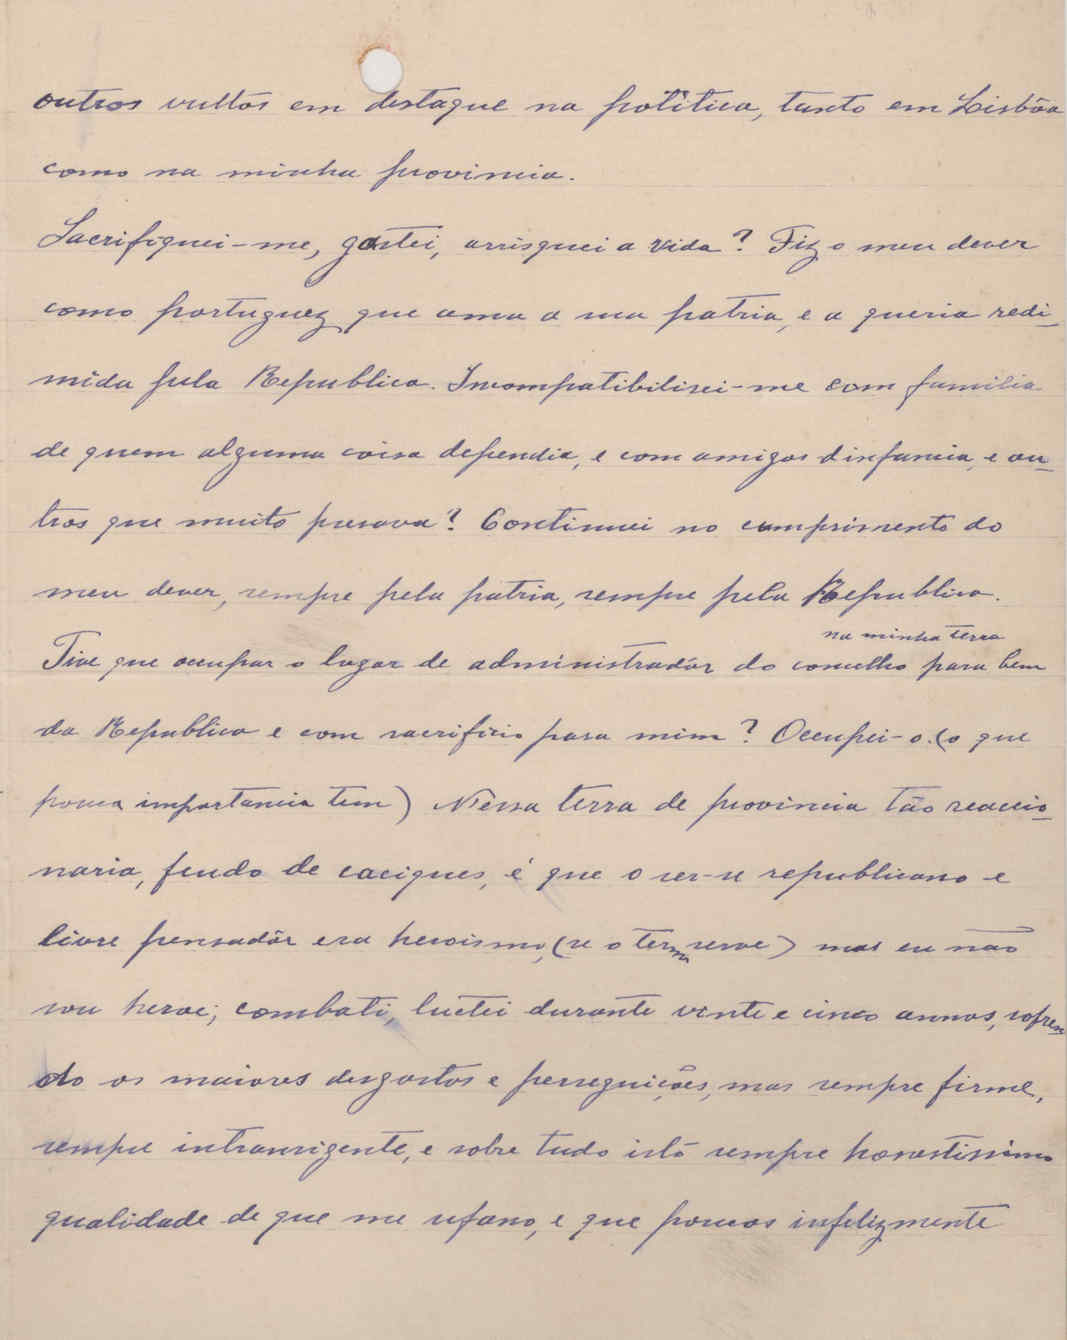 outros vultos em destaque na politica, tanto em Lisbôa
como na minha provincia.
Sacrifiquei-me, gastei, arrisquei a vida? Fiz o meu dever
como portuguez que ama a sua patria, e a queria redi-
mida pela Republica. Incompatibilisei-me com familia
de quem alguma coisa dependia, e com amigos d'infancia, e ou-
tros que muito presava? Continuei no cumprimento do
meu dever, sempre pela patria, sempre pela Republica.
na minha terra
Tive que occupar o lugar de administradôr do concelho para bem
da Republica e com sacrificio para mim? Occupei-o. (o que
pouca importancia tem) Nêssa terra de provincia tão reaccio-
naria, feudo de caciques, é que o ser-se republicano e
livre pensadôr era heroismo, (se o termo serve) mas eu não
sou heroe; combati, luctei durante vinte e cinco annos, sofren-
do os maiores desgostos e perseguições, mas sempre firme,
sempre intransigente, e sobre tudo isto sempre honestissimo
qualidade de que me ufano, e que poucos infelizmente